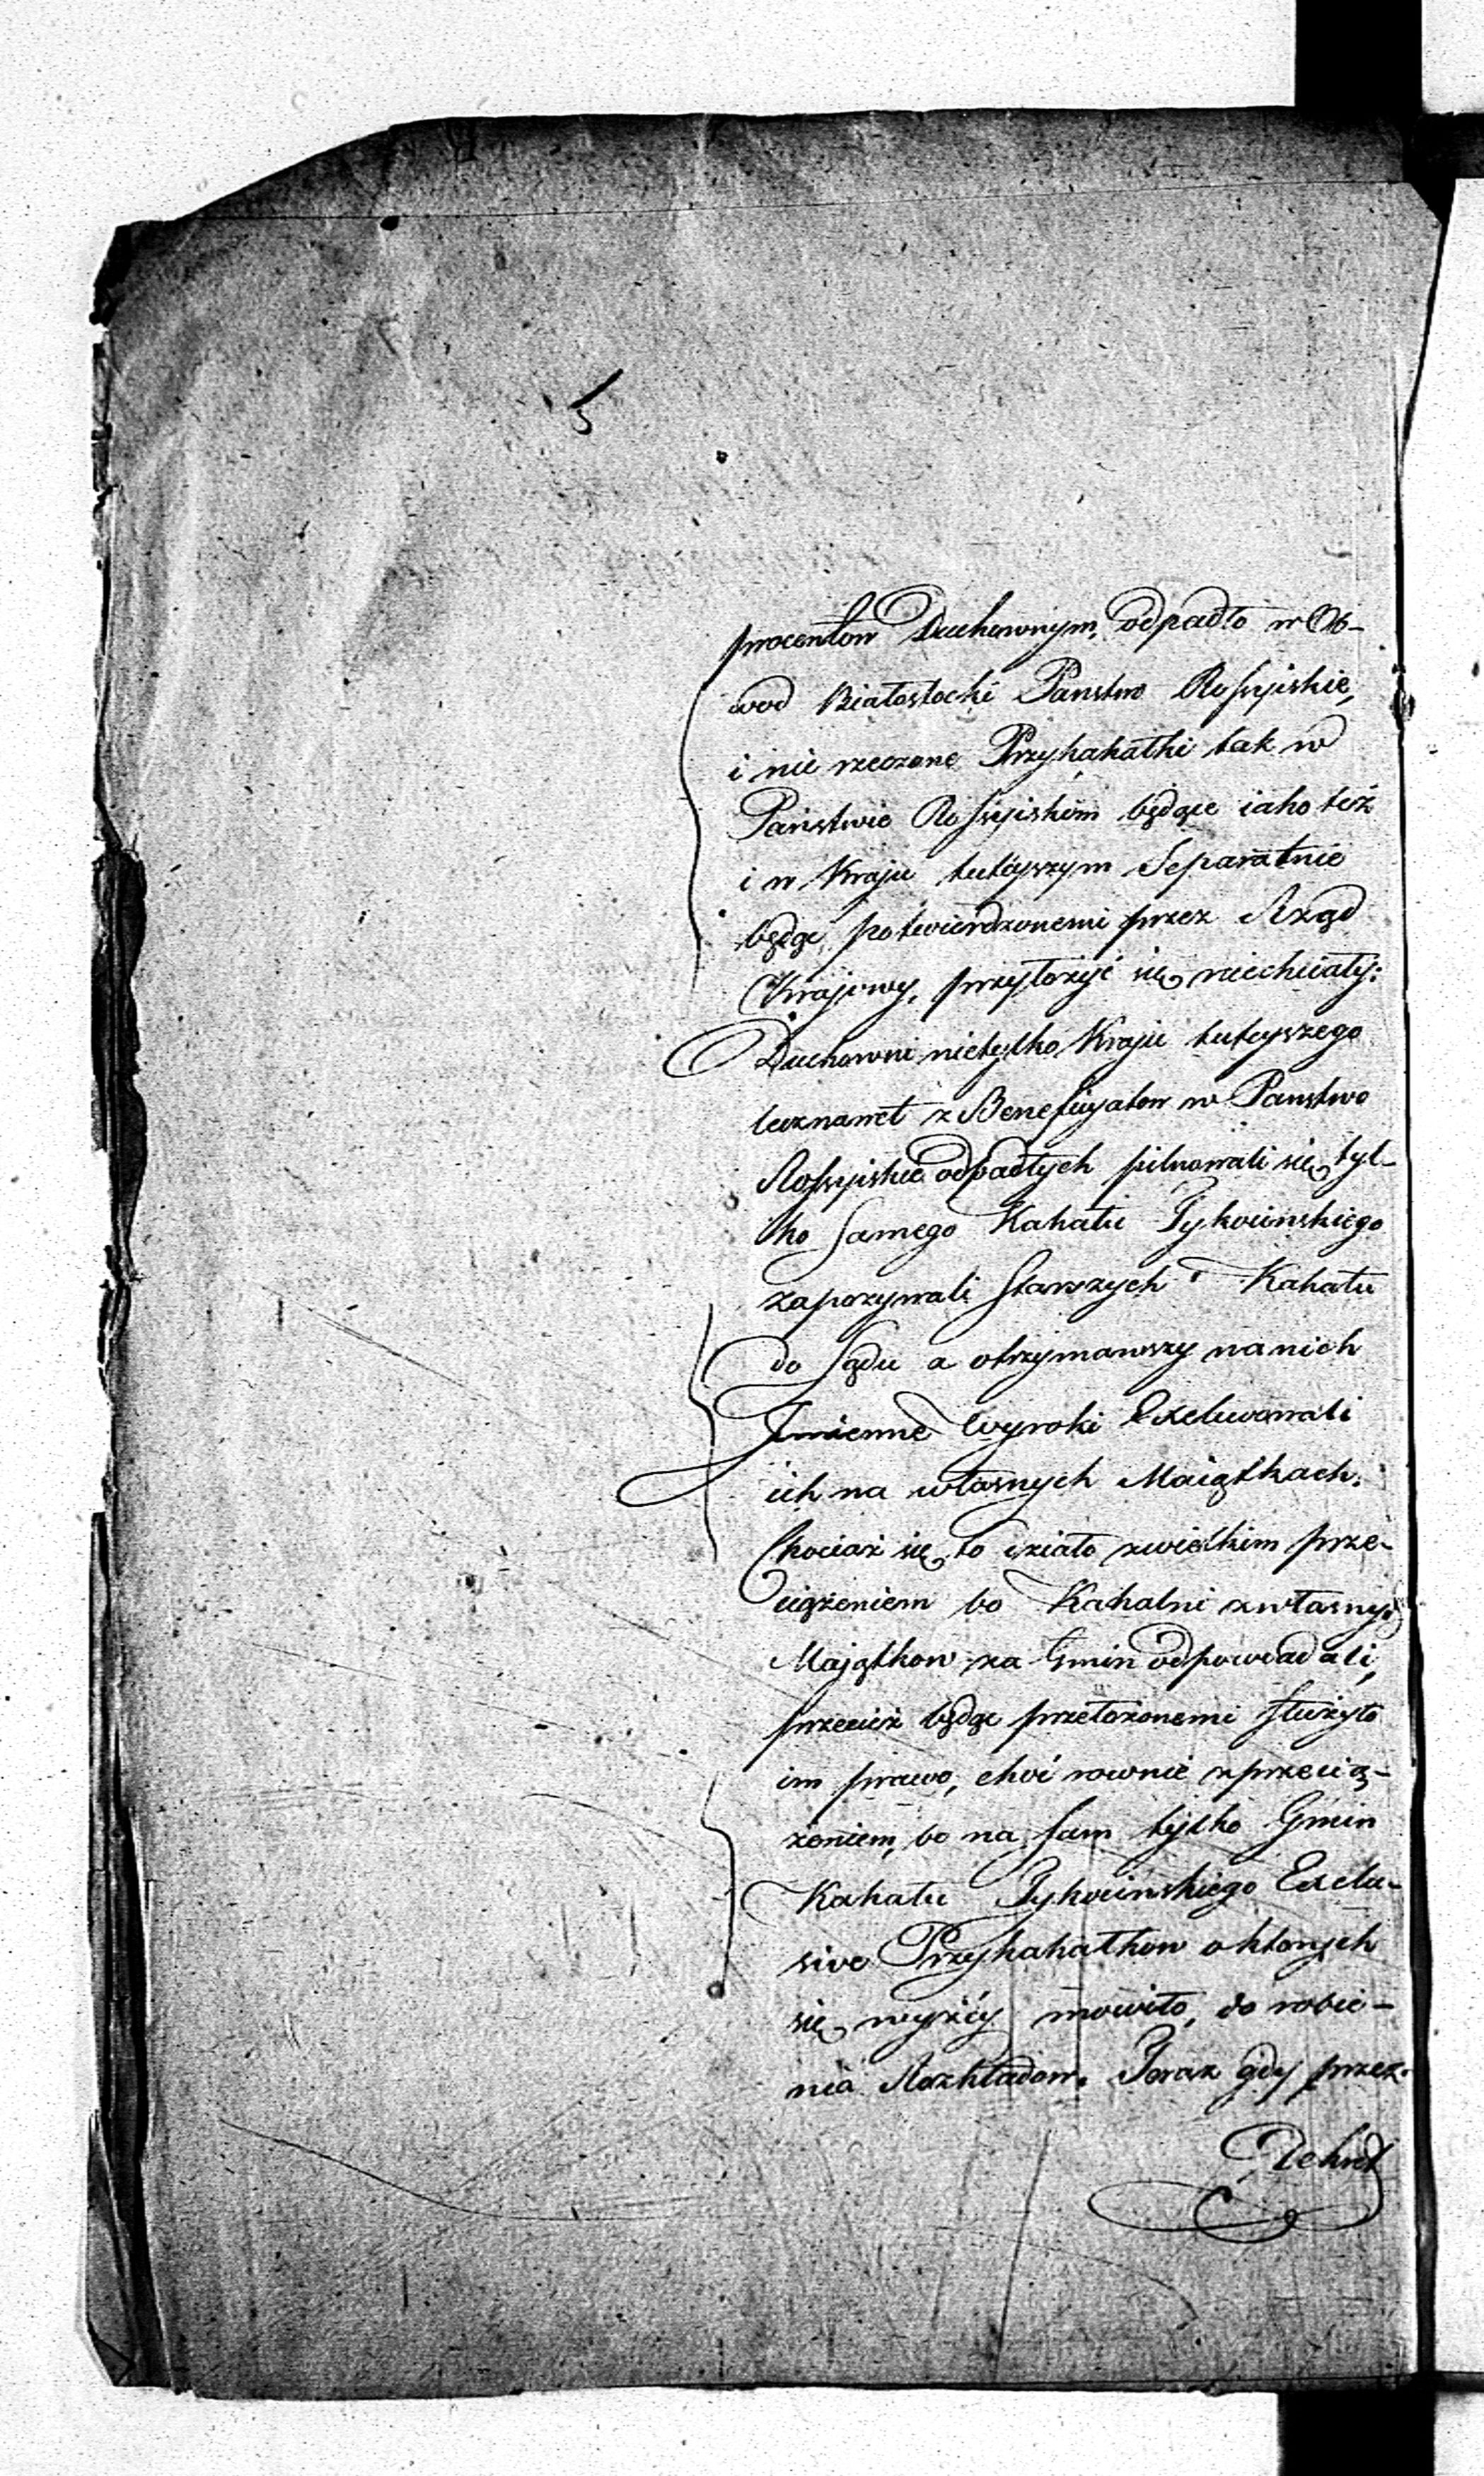 5
procentow Duchownym, odpadło w Ob-
wod Białostocki Panstwo Rossyiskie,
i nie rzeczone Przykahałki tak w
Państwie Rossyiskim będące iako też
i w Kraju tuteyszym Separatnie
będąc potwierdzonemi przez Rząd
Krajowy, przyłożyć się niechciały:
Duchowni nietylko Kraju tuteyszego
lecz nawet z Beneficyatow w Panstwo
Rossyiskie odpadłych pilnowali się tyl-
ko samego Kahału Tykocinskiego
zapozywali Starszych Kahału
do Sądu a otrzymawszy na nich
Imienne Wyroki Exekwowali
ich na własnych Maiątkach.
Chociaż się to działo z wielkim prze-
ciążeniem bo Kahalni z własnych
Majątkow za Gmin odpowiadali,
przecież będąc przełożonemi służyło
im prawo, choć rownie z przecią-
żeniem, bo na sam tylko Gmin
Kahału Tykocinskiego Exclu-
sive Przykahałkow o ktorych
się wyżéy mowiło, do robie-
nia Rozkładow. Teraz gdy przez
Dekret